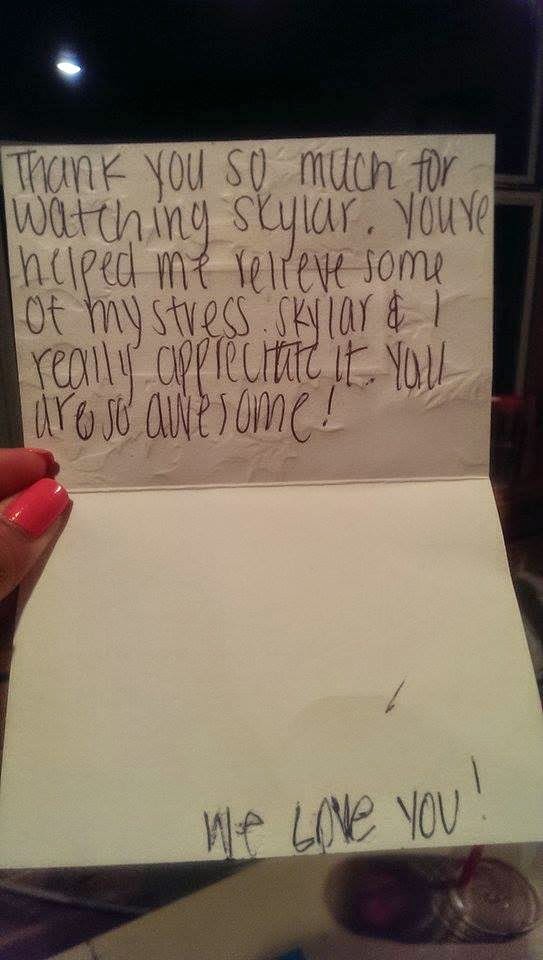 Thank you so much for
watching skylar. You've
helped me relieve some
of my stress. skylar & I
really appreciate it. Yall
are so awesome!
We Love You!